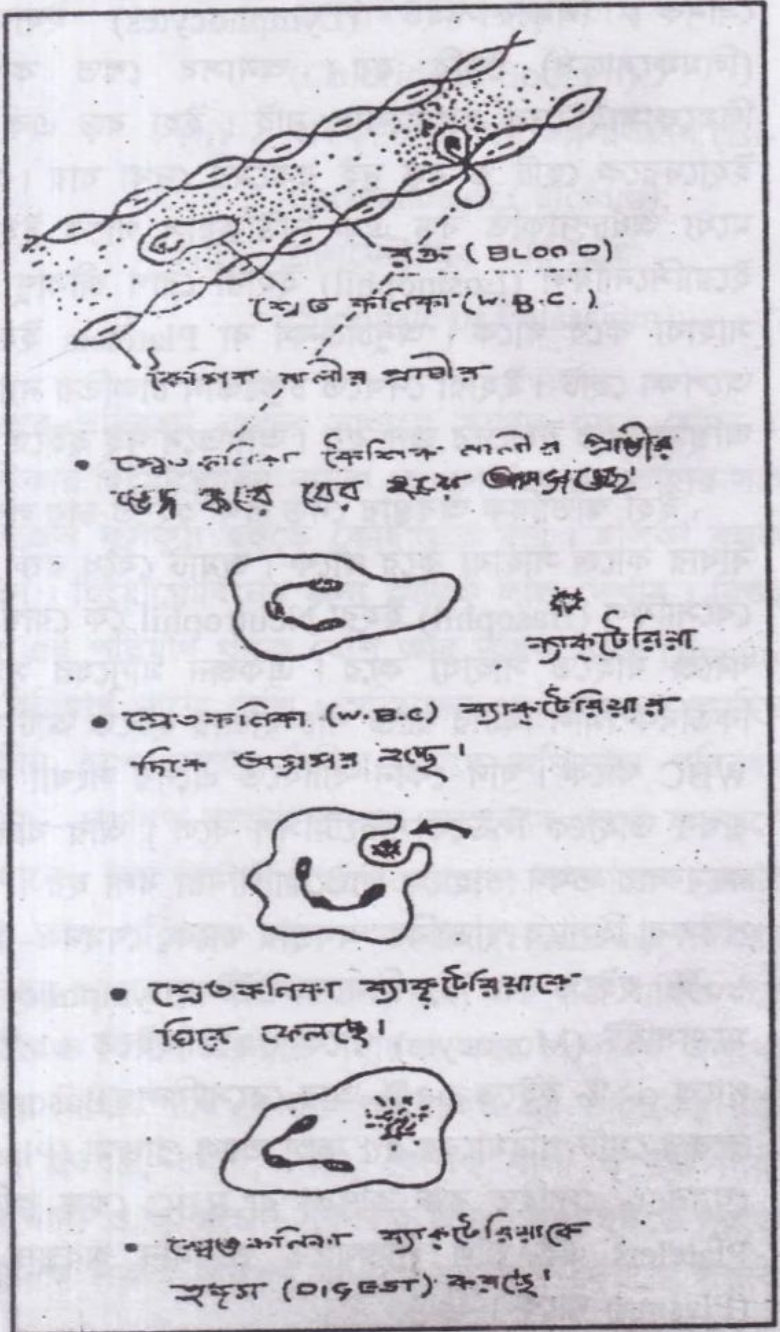 রক্ত (BLOOD)
শ্বেত কনিকা (W.B.C.)
কৈশিক নালীর প্রাচীর
• শ্বেতকনিকা কৈশিক নালীর প্রাচীর
ভেদ করে বের হয়ে আসছে।
ব্যাকটেরিয়া
• শ্বেতকনিকা (W.B.C) ব্যাকটেরিয়ার
দিকে অগ্রসর হচ্ছে।
• শ্বেতকনিকা ব্যাকটেরিয়াকে
ঘিরে ফেলছে।
• শ্বেতকনিকা ব্যাকটেরিয়াকে
হজম (DIGEST) করছে।